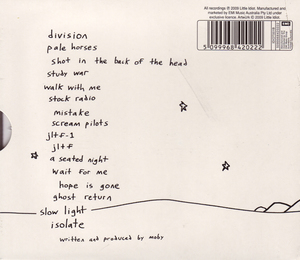 All recordings © 2009 Little Idiot. Manufactured and
marketed by EMI Music Australia Pty Ltd under
exclusive licence. Artwork © 2009 Little Idiot.
EMI
5 099968 420222
division
pale horses
shot in the back of the head
study war
walk with me
stock radio
mistake
scream pilots
jltf-1
jltf
a seated night
wait for me
hope is gone
ghost return
slow light
isolate
written and produced by moby